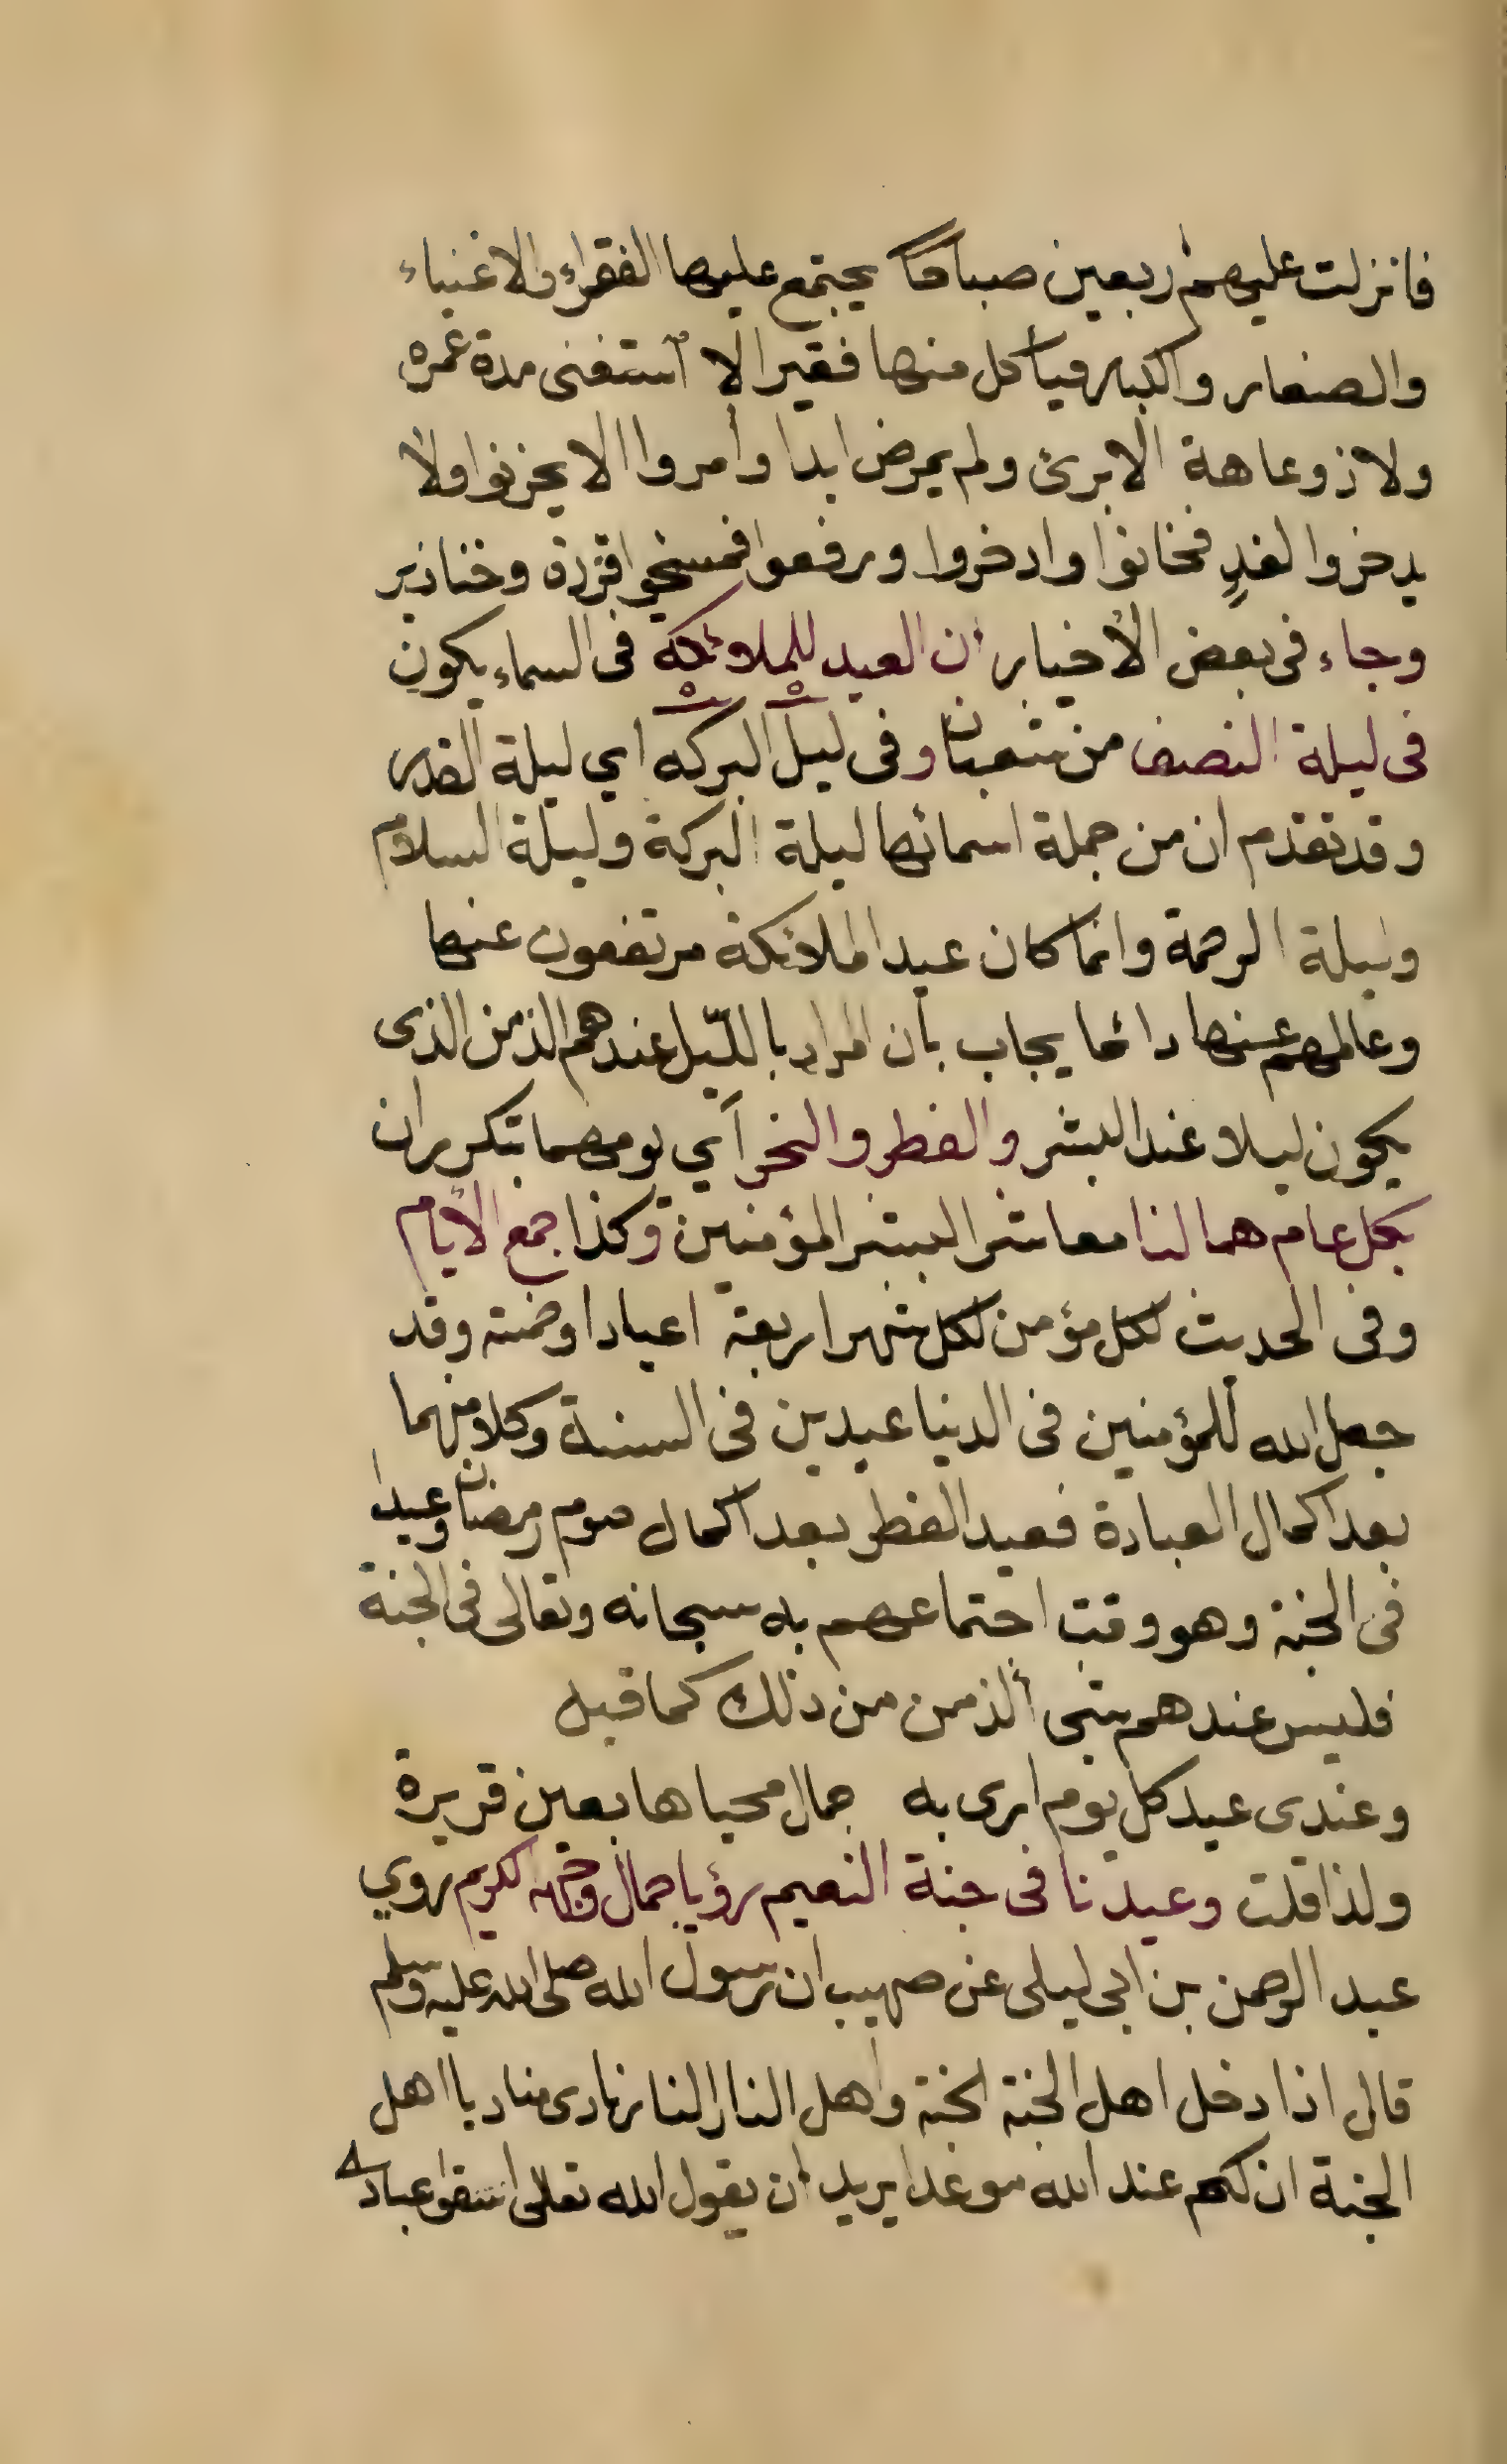 فانزلت عليهم اربعين صباحًا يجتمع عليها الفقراء والاغنياء
والصغار والكبار فيأكل منها فقيرا إلا استغنى مدة عمره
ولا ذو عاهة الا برئ ولم يمرض ابدا وأمروا الا يخزنوا ولا
يدخروا لغدٍ فخانوا وادخروا ورفعوا فمسخوا قردة وخنازير
وجاء في بعض الأخيار ان العيد للملائكة في السماء يكون
في ليلة النصف من شعبان وفي ليل البركه اي ليلة القدر
وقد تقدم ان من جملة اسمائها ليلة البركة وليلة السلام
وليلة الرحمة وانما كان عيد الملائكة مرتفعون عنها
وعالمهم عنها دائما يجاب بأن المراد بالليل عندهم الزمن الذى
يكون ليلا عند البشر والفطر والنحر أي يومهما بتكرران
بكل عام هما لنا معاشر البشر المؤمنين وكذا جمع الأيام
وفي الحديث لكل مؤمن لكل شهر اربعة اعيادا وخمسة وقد
جعل الله للمؤمنين في الدنيا عيدين في السنة وكلا منهما
بعد اكمال العبادة فعيد الفطر بعد اكمال صوم رمضان وعيدا
في الجنة وهو وقت اجتماعهم به سبحانه وتعالى في الجنة
فليس عندهم شئ ألذ من من ذلك كما قيل
وعندى عيد كل يوم ارى به جمال محياها بعين قريرة
ولذا قلت وعيدنا في جنة النعيم رؤيا جمال وجهه الكريم روي
عبد الرحمن بن ابي ليلى عن صهيب ان رسول الله صلى الله عليه وسلم
قال اذا دخل اهل الجنة الجنة وأهل النار النار نادى مناد يا اهل
الجنة ان لكم عند الله موعدا يريد ان يقول الله تعالى اشتقوا عباد